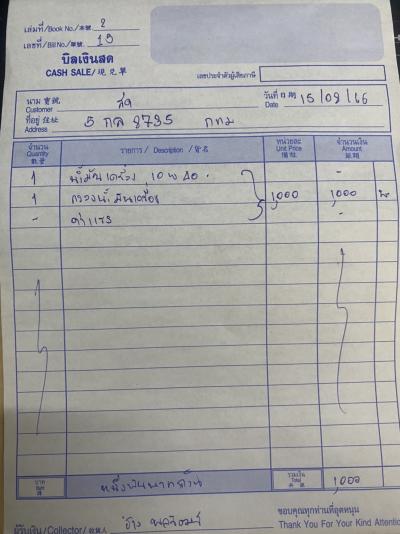 เล่มที่/Book No./本號 2
เลขที่/Bill No./單號 15
บิลเงินสด
CASH SALE/現兌單
เลขประจำตัวผู้เสียภาษี
นาม 寶號 สด วันที่ 日期 15/09/66
Customer Date
ที่อยู่ 住址 5 กล 8795 กทม
Address
จำนวน รายการ / Description / 貨名 หน่วยละ จำนวนเงิน
Quantity Unit Price Amount
數量 價格 銀額
1 น้ำมันเครื่อง 10 W 40 -
1 กรองน้ำมันเครื่อง 1,000 1,000
- ค่าแรง -
บาท หนึ่งพันบาทถ้วน รวมเงิน 1,000
Baht Total
ขอบคุณทุกท่านที่อุดหนุน
ผู้รับเงิน/Collector/收款人 ช่าง Thank You For Your Kind Attention